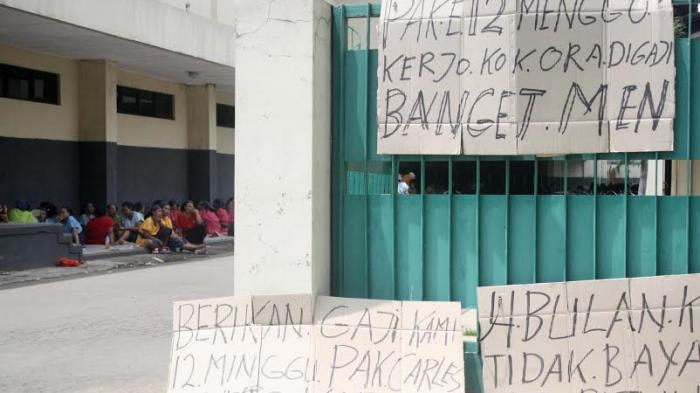 PAKE 12 MENGGU
KERJO.KOK.ORA.DIGAJI
BANGET.MEN
BERIKAN.GAJI KAMI
12.MINGGU.PAK.CARLES
BULAN
TIDAK.BAYA